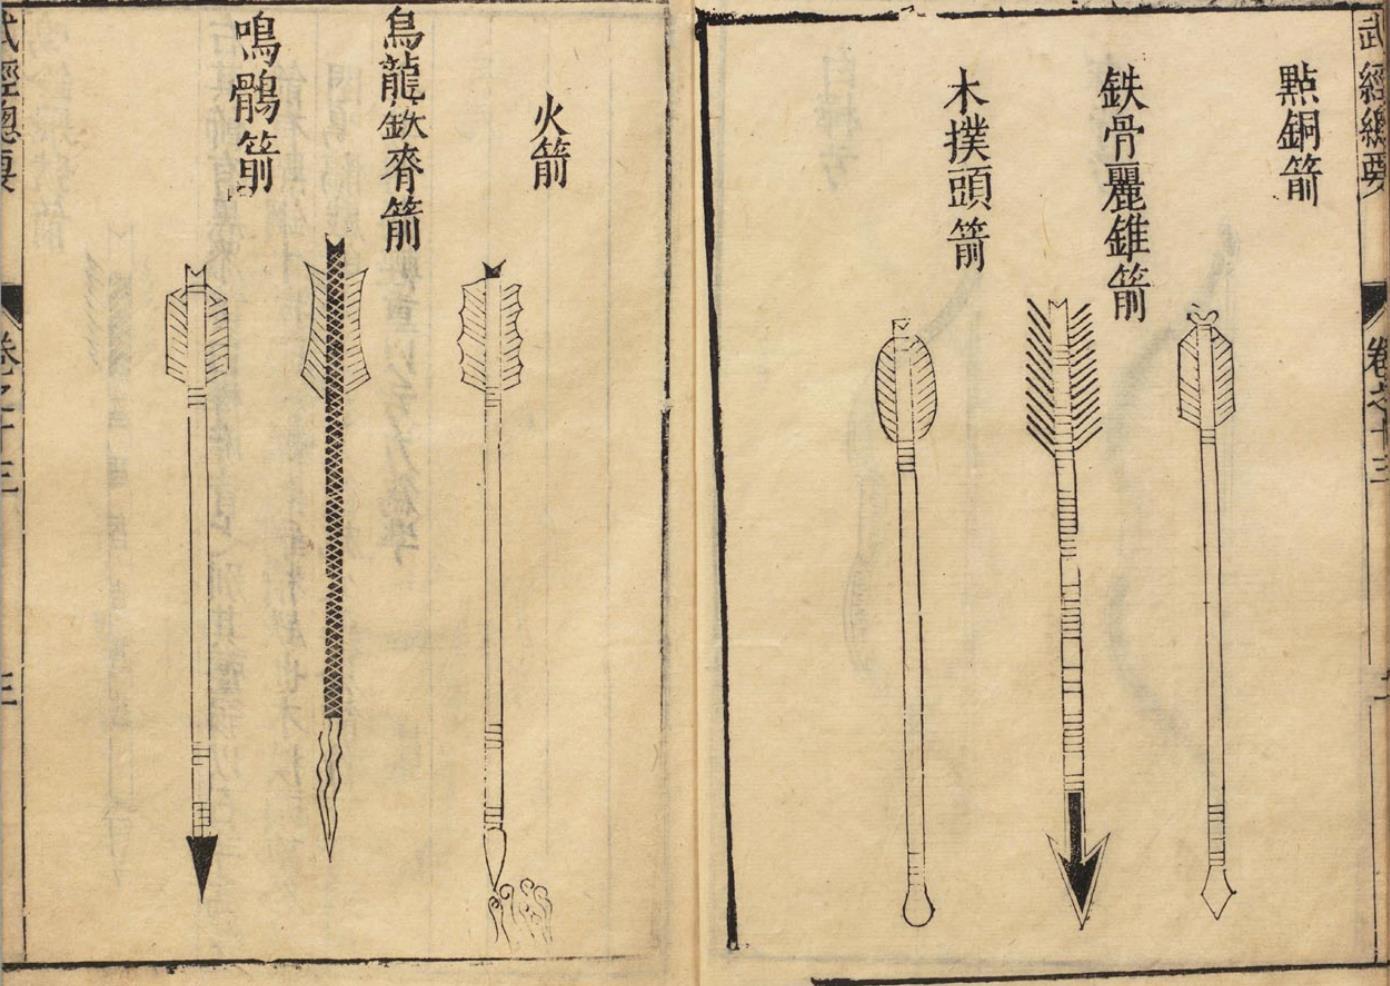 武經總要
卷之十三
點銅箭
鉄骨麗錐箭
木撲頭箭
火箭
烏龍鉄脊箭
鳴鶻箭
武經總要
卷之十三
三